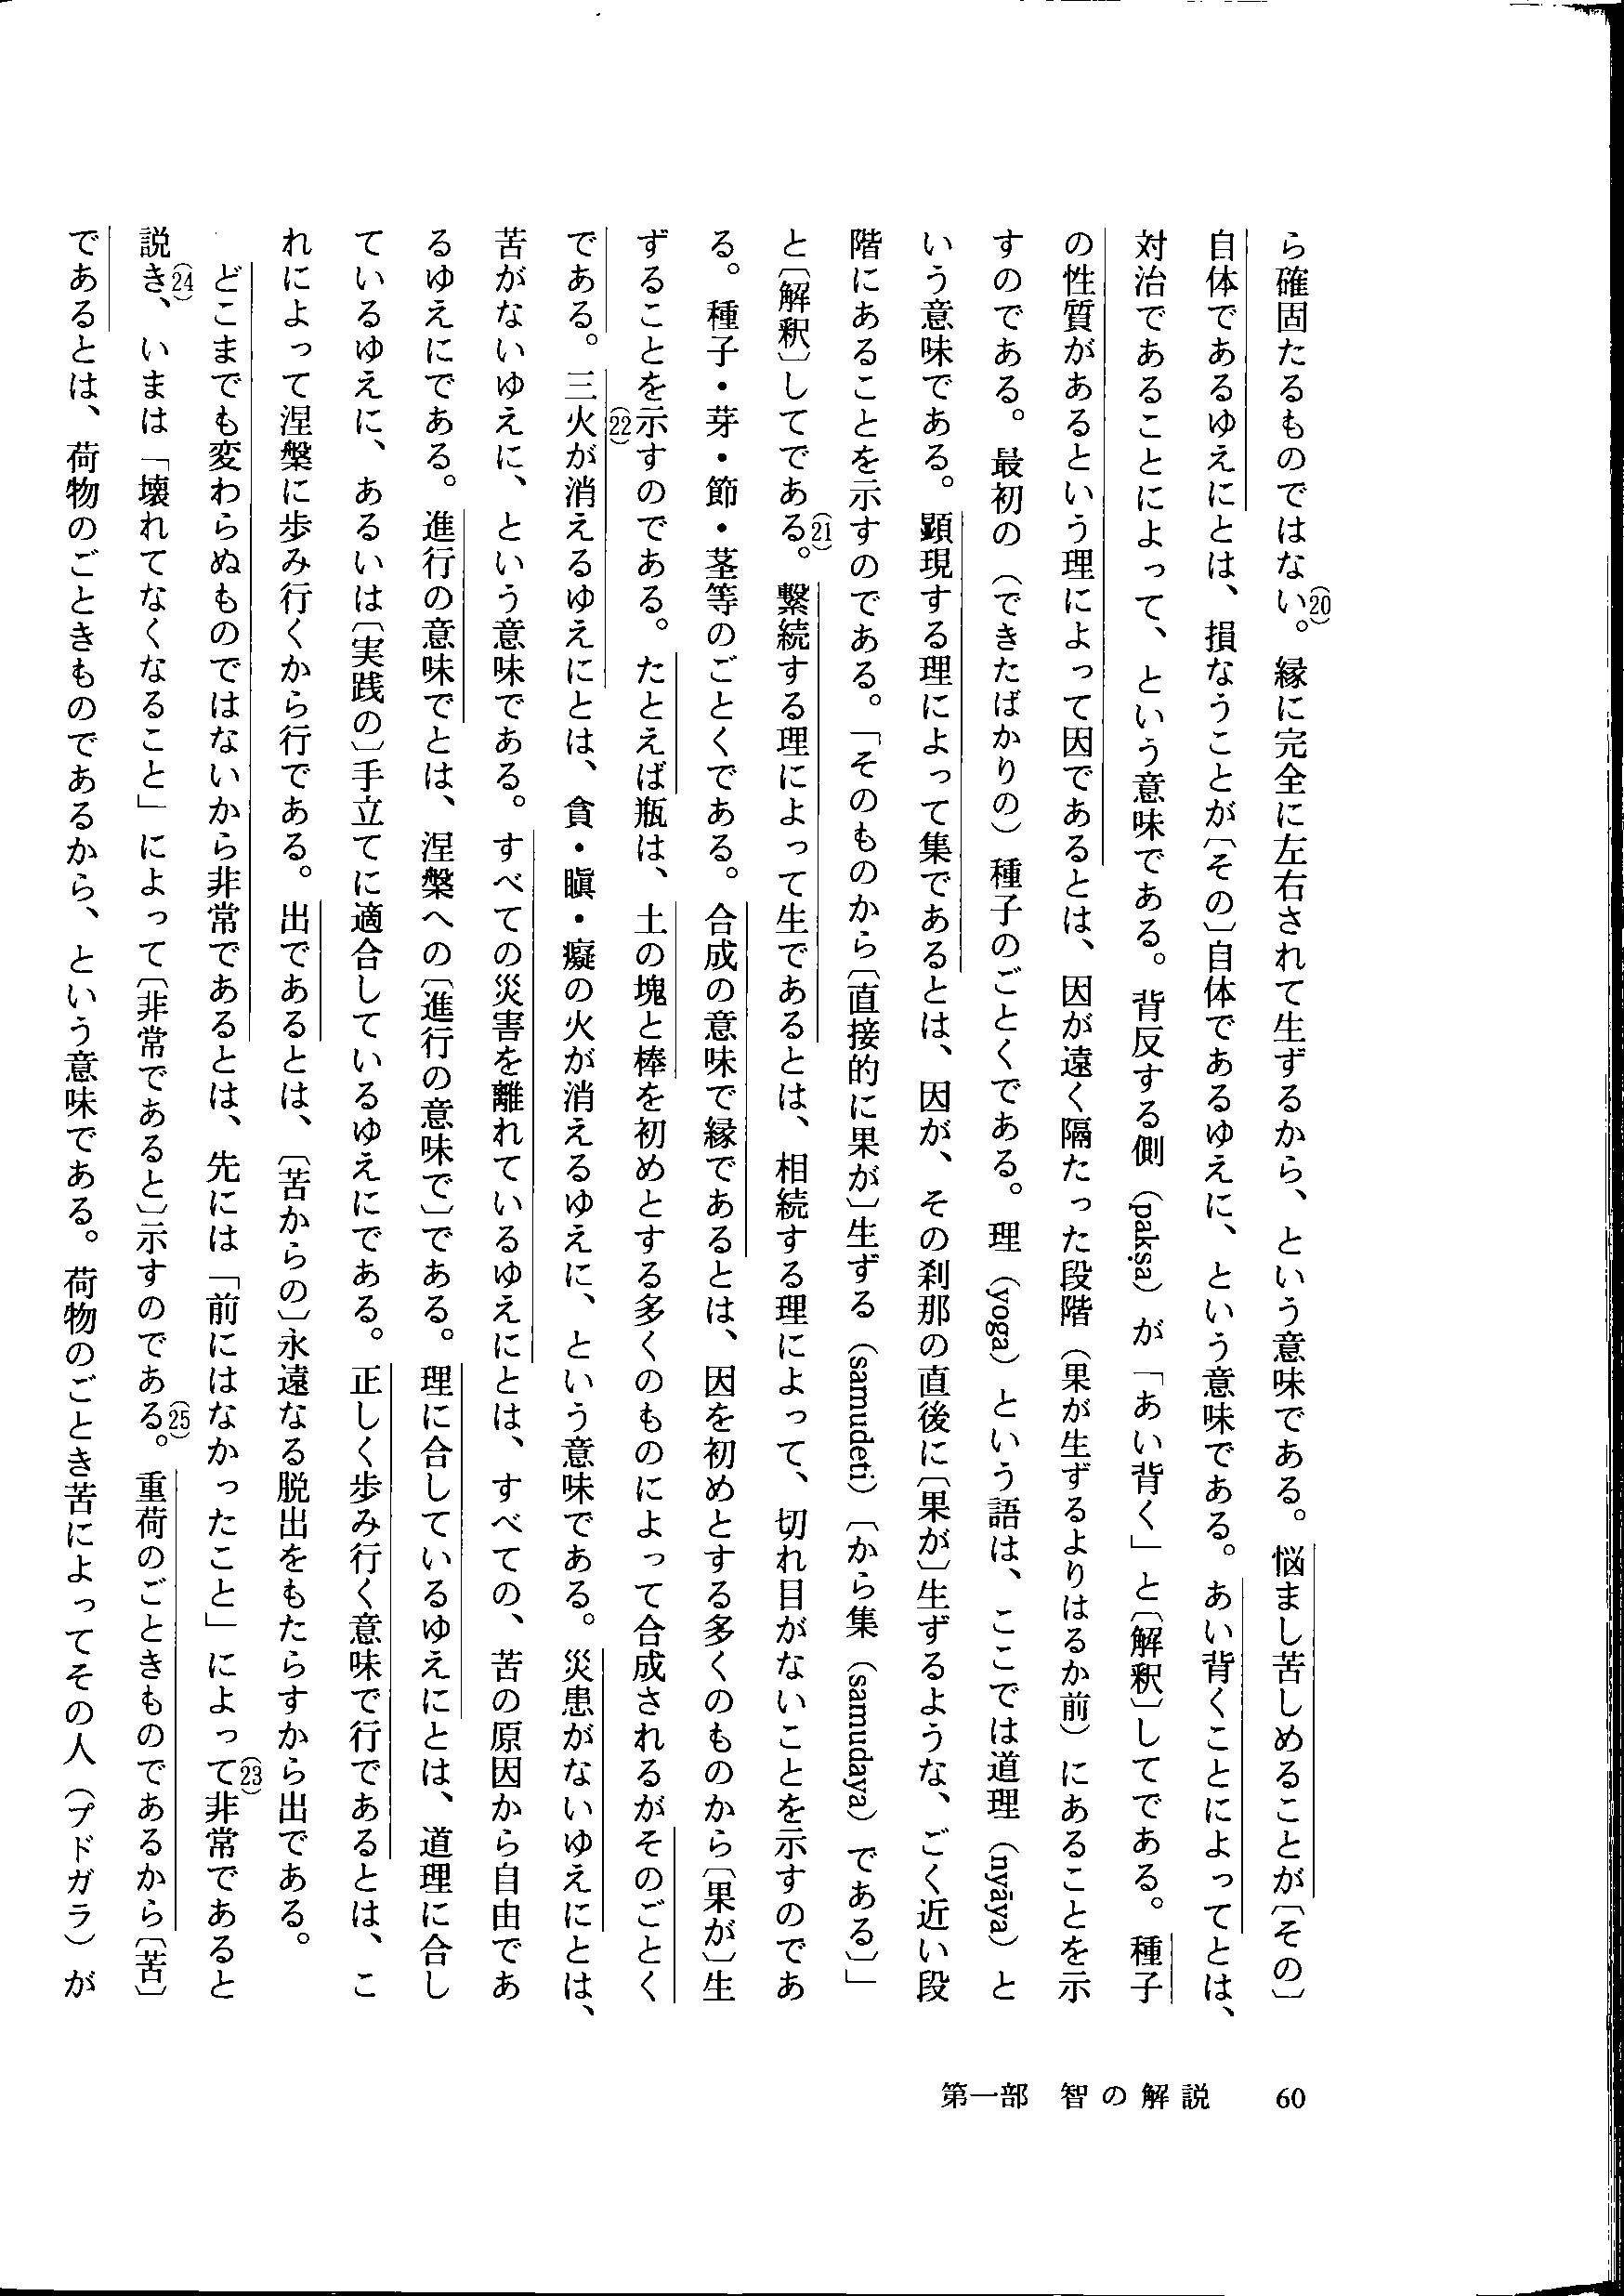 ら確固たるものではない。(20)縁に完全に左右されて生ずるから、という意味である。悩まし苦しめることが〔その〕
自体であるゆえにとは、損なうことが〔その〕自体であるゆえに、という意味である。あい背くことによってとは、
対治であることによって、という意味である。背反する側（pakṣa）が「あい背く」と〔解釈〕してである。種子
の性質があるという理によって因であるとは、因が遠く隔たった段階（果が生ずるよりはるか前）にあることを示
すのである。最初の（できたばかりの）種子のごとくである。理（yoga）という語は、ここでは道理（nyāya）と
いう意味である。顕現する理によって集であるとは、因が、その刹那の直後に〔果が〕生ずるような、ごく近い段
階にあることを示すのである。「そのものから〔直接的に果が〕生ずる（samudeti）〔から集（samudaya）である〕」
と〔解釈〕してである。(21)繫続する理によって生であるとは、相続する理によって、切れ目がないことを示すのであ
る。種子・芽・節・茎等のごとくである。合成の意味で縁であるとは、因を初めとする多くのものから〔果が〕生
ずることを示すのである。たとえば瓶は、土の塊と棒を初めとする多くのものによって合成されるがそのごとく
である。三火(22)が消えるゆえにとは、貪・瞋・癡の火が消えるゆえに、という意味である。災患がないゆえにとは、
苦がないゆえに、という意味である。すべての災害を離れているゆえにとは、すべての、苦の原因から自由であ
るゆえにである。進行の意味でとは、涅槃への〔進行の意味で〕である。理に合しているゆえにとは、道理に合し
ているゆえに、あるいは〔実践の〕手立てに適合しているゆえにである。正しく歩み行く意味で行であるとは、こ
れによって涅槃に歩み行くから行である。出であるとは、〔苦からの〕永遠なる脱出をもたらすから出である。
どこまでも変わらぬものではないから非常であるとは、先には「前にはなかったこと」によって(23)非常であると
説き、(24)いまは「壊れてなくなること」によって〔非常であると〕示すのである。(25)重荷のごときものであるから〔苦〕
であるとは、荷物のごときものであるから、という意味である。荷物のごとき苦によってその人（プドガラ）が
第一部　智の解説　60